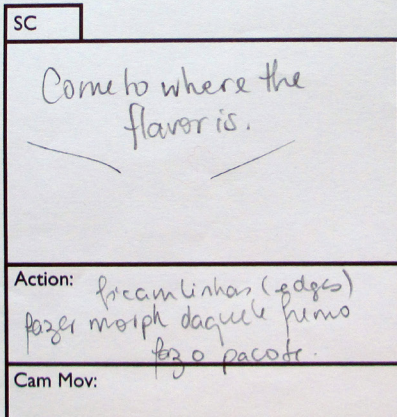 SC
Come to where the
flavor is.
Action: ficam linhas (edges)
fazer morph daquele fumo
faz o pacote.
Cam Mov: